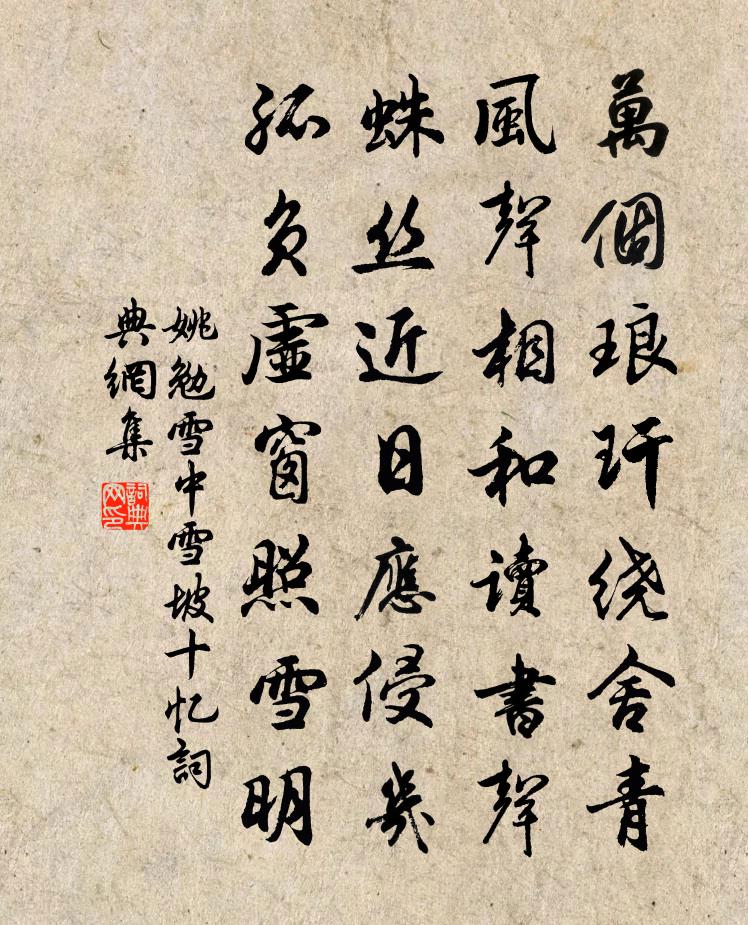 萬個琅玕绕舍青
風聲相和讀書聲
蛛丝近日應侵幾
孤负虛窗照雪明
姚勉雪中雪坡十忆詞
典網集
詞典
网印